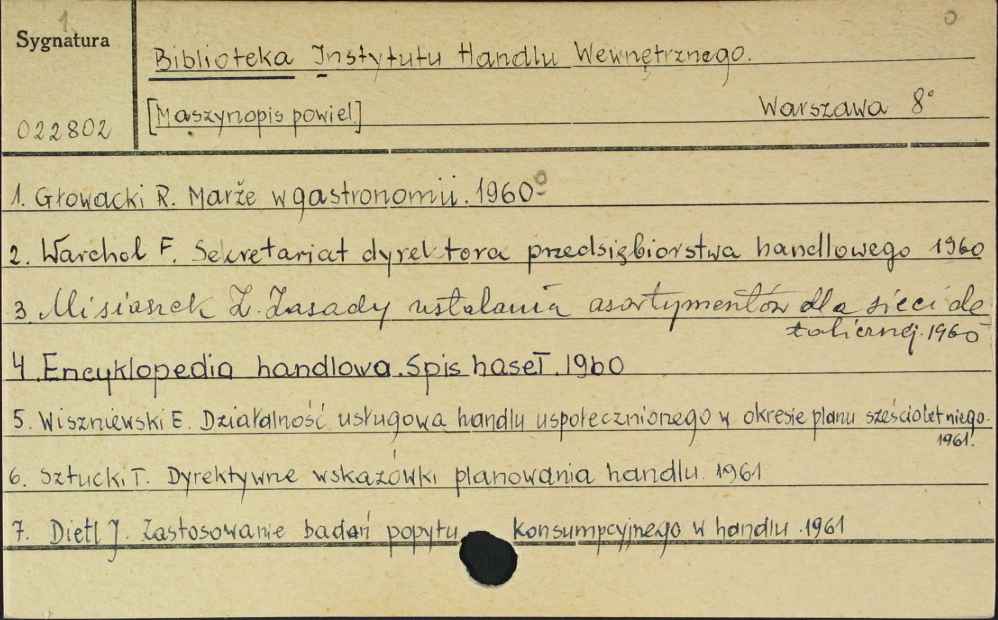 1
0
Sygnatura
Biblioteka Instytutu Handlu Wewnętrznego.
[Maszynopis powiel]
Warszawa 8°
022802
1. Głowacki R. Marże w gastronomii. 1960
2. Warchoł F. Sekretariat dyrektora przedsiębiorstwa handlowego 1960
3. Misiaszek Z. Zasady ustalania asortymentów dla sieci de
talicznej. 1960
4. Encyklopedia handlowa. Spis haseł. 1960
5. Wiszniewski E. Działalność usługowa handlu uspołecznionego w okresie planu sześcioletniego.
1961.
6. Sztucki T. Dyrektywne wskazówki planowania handlu. 1961
7. Dietl J. Zastosowanie badań popytu konsumpcyjnego w handlu. 1961